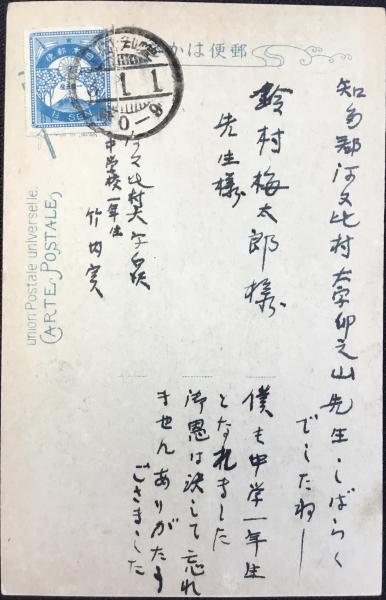 郵便はか
知多郡阿久比村大字卯之山
鈴村梅太郎様
先生様
先生・しばらく
でしたねー
僕も中学一年生
となれました
御恩は決して忘れ
ませんありがたう
ございました
阿久比村大字白沢
中学校一年生
竹内実
Union Postale universelle.
CARTE POSTALE
SEN
1 1